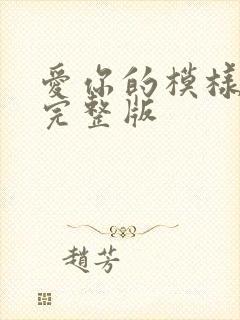 愛你的模樣
完整版
趙芳